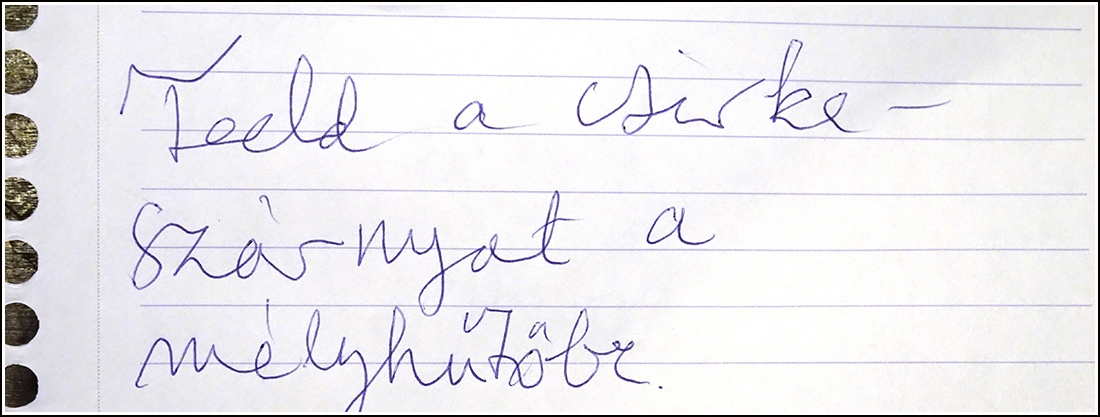 Tedd a csirke-
szárnyat a
mélyhűtőbe.